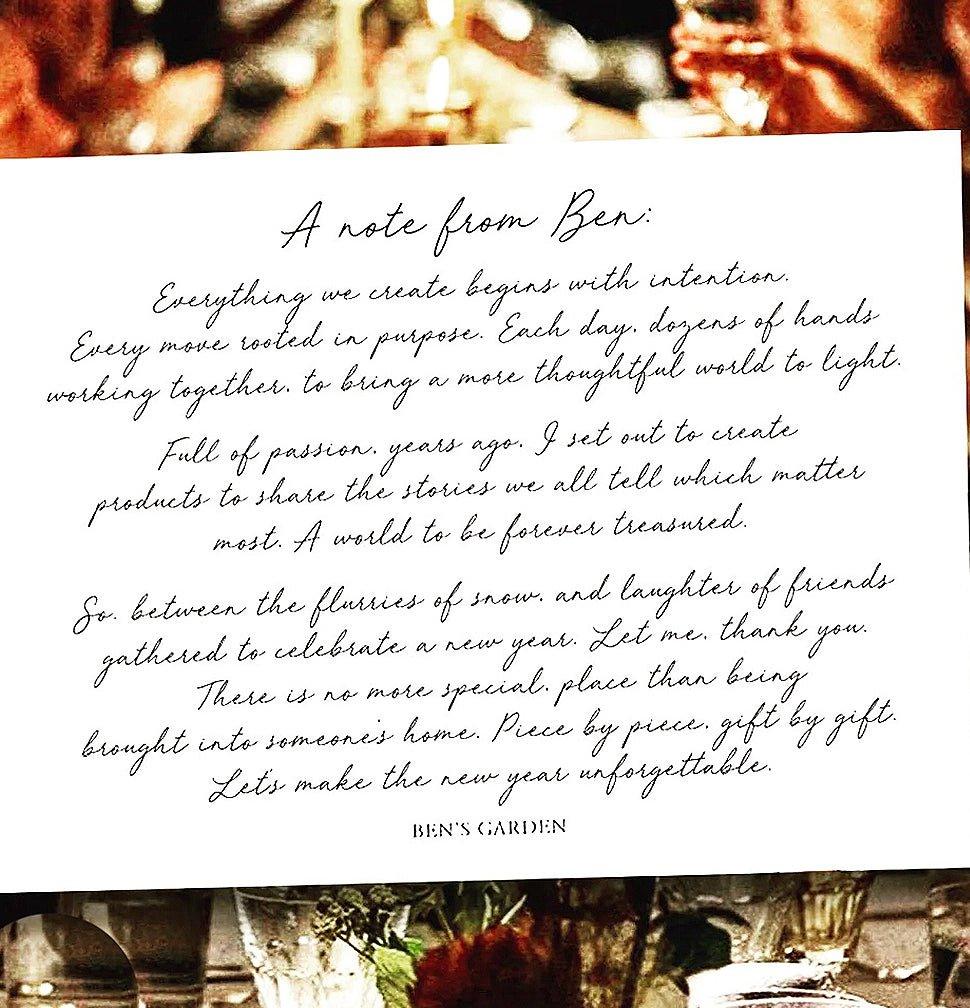 A note from Ben:
Everything we create begins with intention.
Every move rooted in purpose. Each day, dozens of hands
working together, to bring a more thoughtful world to light.
Full of passion, years ago, I set out to create
products to share the stories we all tell which matter
most. A world to be forever treasured.
So, between the flurries of snow, and laughter of friends
gathered to celebrate a new year. Let me, thank you.
There is no more special, place than being
brought into someone's home. Piece by piece, gift by gift.
Let's make the new year unforgettable.
BEN'S GARDEN